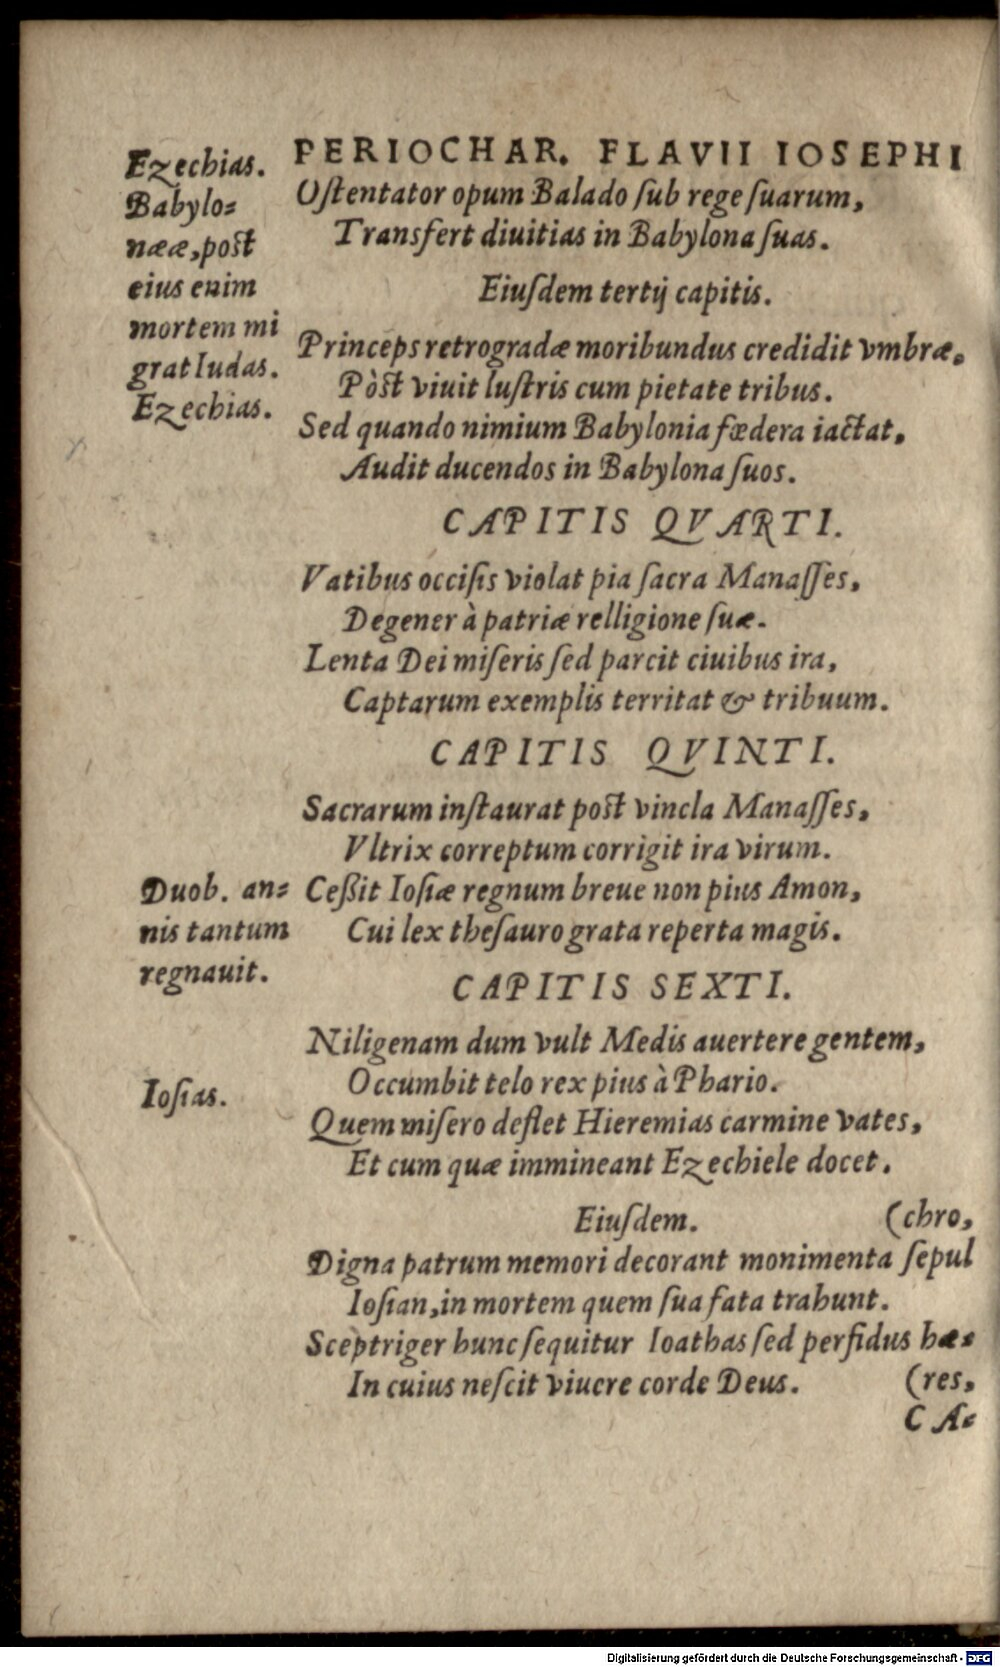 PERIOCHAR. FLAVII IOSEPHI
Ezechias.
Babylo=
nææ, post
eius enim
mortem mi
grat Iudas.
Ezechias.
Oſtentator opum Balado ſub rege ſuarum,
Tranſfert diuitias in Babylona ſuas.
Eiuſdem tertij capitis.
Princeps retrogradæ moribundus credidit vmbræ.
Pòst viuit luſtris cum pietate tribus.
Sed quando nimium Babylonia fœdera iactat,
Audit ducendos in Babylona ſuos.
CAPITIS QVARTI.
Vatibus occiſis violat pia ſacra Manaſſes,
Degener à patriæ relligione ſuæ.
Lenta Dei miſeris ſed parcit ciuibus ira,
Captarum exemplis territat & tribuum.
CAPITIS QVINTI.
Sacrarum inſtaurat post vincla Manaſſes,
Vltrix correptum corrigit ira virum.
Duob. an=
nis tantum
regnauit.
Ceßit Ioſiæ regnum breue non pius Amon,
Cui lex theſauro grata reperta magis.
CAPITIS SEXTI.
Niligenam dum vult Medis auertere gentem,
Occumbit telo rex pius à Phario.
Ioſias.
Quem miſero deflet Hieremias carmine vates,
Et cum quæ immineant Ezechiele docet.
Eiuſdem. (chro,
Digna patrum memori decorant monimenta ſepul
Ioſian, in mortem quem ſua fata trahunt.
Sceptriger hunc ſequitur Ioathas ſed perfidus hæ=
In cuius neſcit viuere corde Deus. (res,
CA=
Digitalisierung gefördert durch die Deutsche Forschungsgemeinschaft - DFG